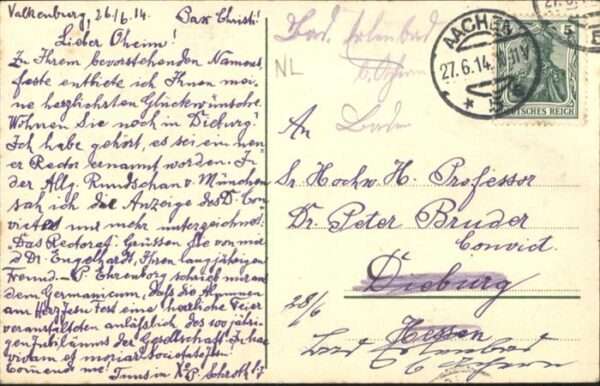 Valkenburg, 26/6.14. Pax Christi!
Lieber Oheim!
Zu Ihrem bevorstehenden Namens-
feste entbiete ich Ihnen mei-
ne herzlichsten Glückwünsche.
Wohnen Sie noch in Dieburg?
Ich habe gehört, es sei ein neu-
er Rector ernannt worden. In
der Allg. Rundschau v. München
sah ich die Anzeige des D. Con-
victes nur mehr unterzeichnet:
"Das Rectorat". Grüssen Sie von mir
Dr. Engelhardt, Ihren langjährigen
Freund. - P. Ehrenborg schrieb mir aus
dem Germanicum, dass die Alumnen
am Herz Jesu Fest eine herrliche Feier
veranstalteten anlässlich des 100 jähri-
gen Jubiläums der Gesellschaft. In hac
vivam et moriar societate!
Tuus in Xo P.
Bad Erlenbad
b. Achern
NL
Baden
AACHEN
27.6.14.
5
DEUTSCHES REICH
27.6.14
An
Sr. Hochw. H. Professor
Dr. Peter Bruder
Convict.
Dieburg
28/6
Hessen
Bad Erlenbad
Achern